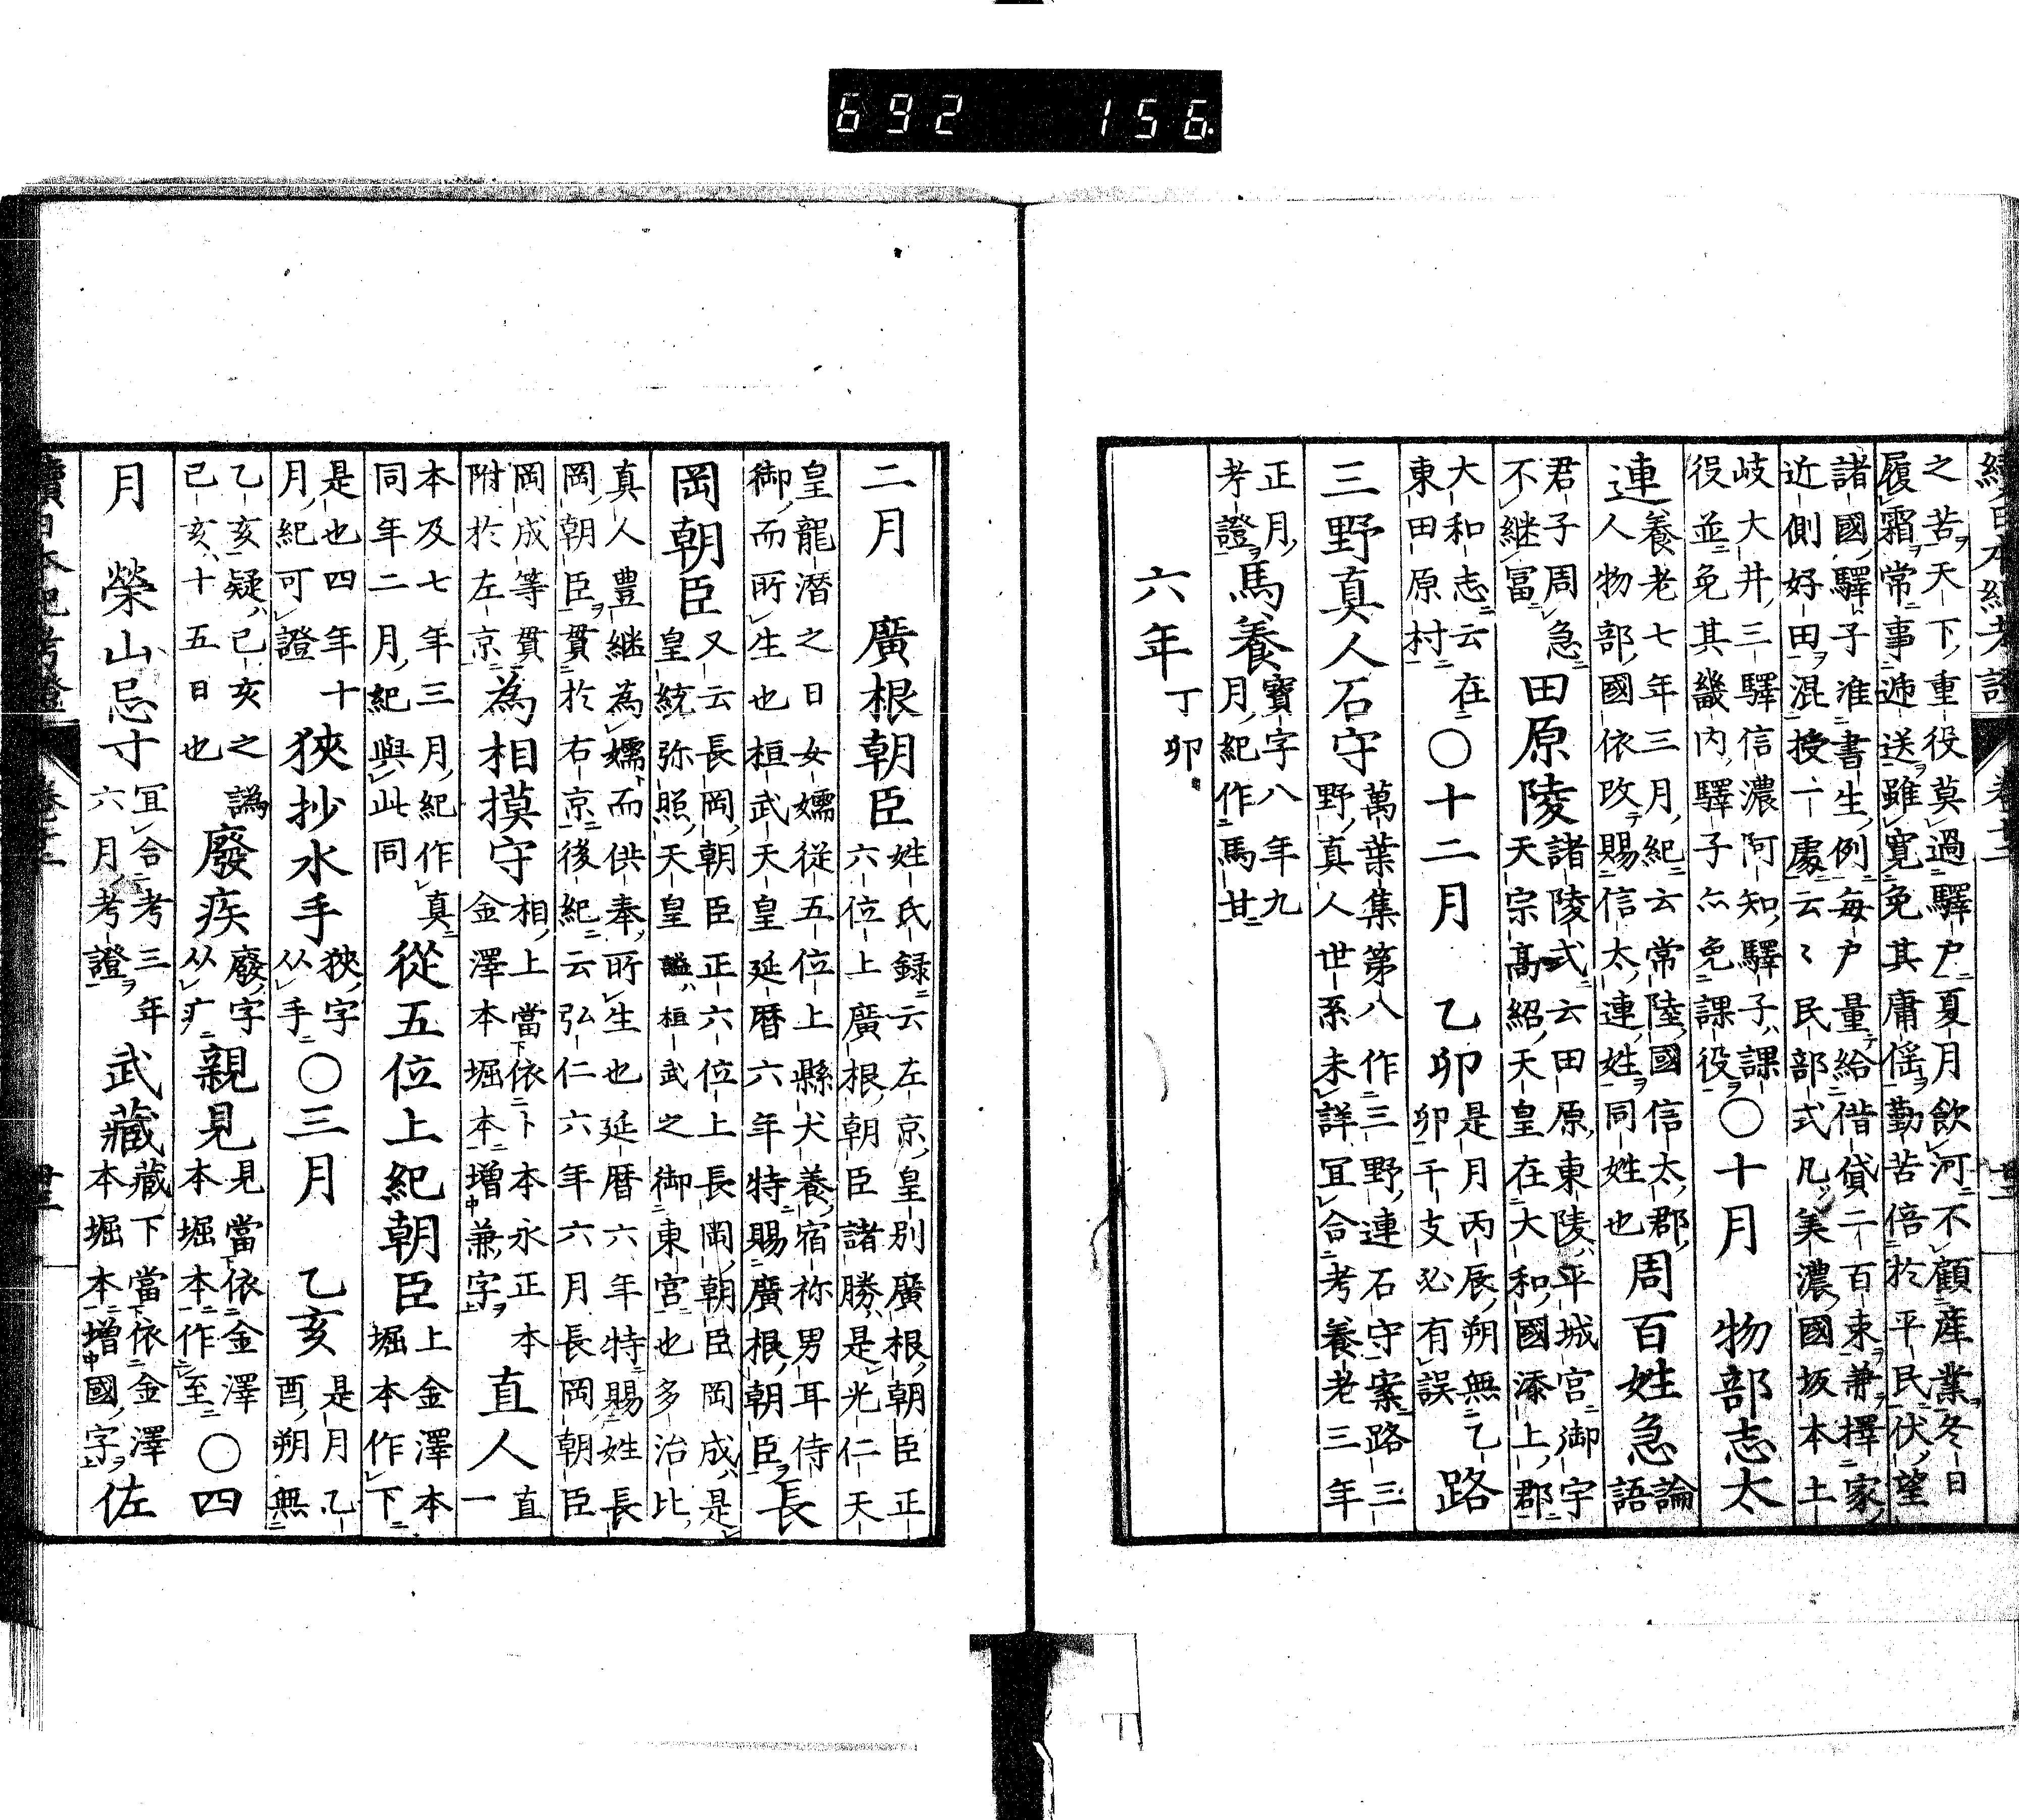 692 156
續日本紀考證
之苦天下重役莫過驛戶夏月飲河不顧産業冬日
履霜常事遞送雖寛免其庸徭勤苦倍於平民伏望
諸國驛子准書生例每戶量給借貸一百束兼擇家
近側好田混授一處云〻民部式凡美濃國坂本土
岐大井三驛信濃阿知驛子課
役並免其畿内驛子亦免課役〇十月 物部志太
連養老七年三月紀云常陸國信太郡
人物部國依改賜信太連姓同姓也周百姓急論語
君子周急
不継富田原陵諸陵式云田原東陵平城宮御宇
天宗高紹天皇在大和國添上郡
大和志云在
東田原村〇十二月 乙卯是月丙辰朔無乙
卯干支必有誤路
三野真人石守萬葉集第八作三野連石守案路三
野真人世系未詳宜合考養老三年
正月
考證馬養寶字八年九
月紀作馬甘
六年丁卯
二月 廣根朝臣姓氏録云左京皇別廣根朝臣正
六位上廣根朝臣諸勝是光仁天
皇龍潛之日女嬬從五位上縣犬養宿祢男耳侍
御而所生也桓武天皇延曆六年特賜廣根朝臣長
岡朝臣又云長岡朝臣正六位上長岡朝臣岡成是
皇統弥照天皇謚桓武之御東宮也多治比
真人豊継為嬬而供奉所生也延曆六年特賜姓長
岡朝臣貫於右京後紀云弘仁六年六月長岡朝臣
岡成等貫
附於左京為相摸守相上當依卜本永正本
金澤本堀本増兼字直人直一
本及七年三月紀作真
同年二月紀與此同從五位上紀朝臣上金澤本
堀本作下
是也四年十
月紀可證狹抄水手狹字
从手〇三月 乙亥是月乙
酉朔無
乙亥疑己亥之譌
己亥十五日也廢疾廢字
从疒親見見當依金澤
本堀本作至〇四
月 榮山忌寸宜合考三年
六月考證武藏藏下當依金澤
本堀本増國字佐